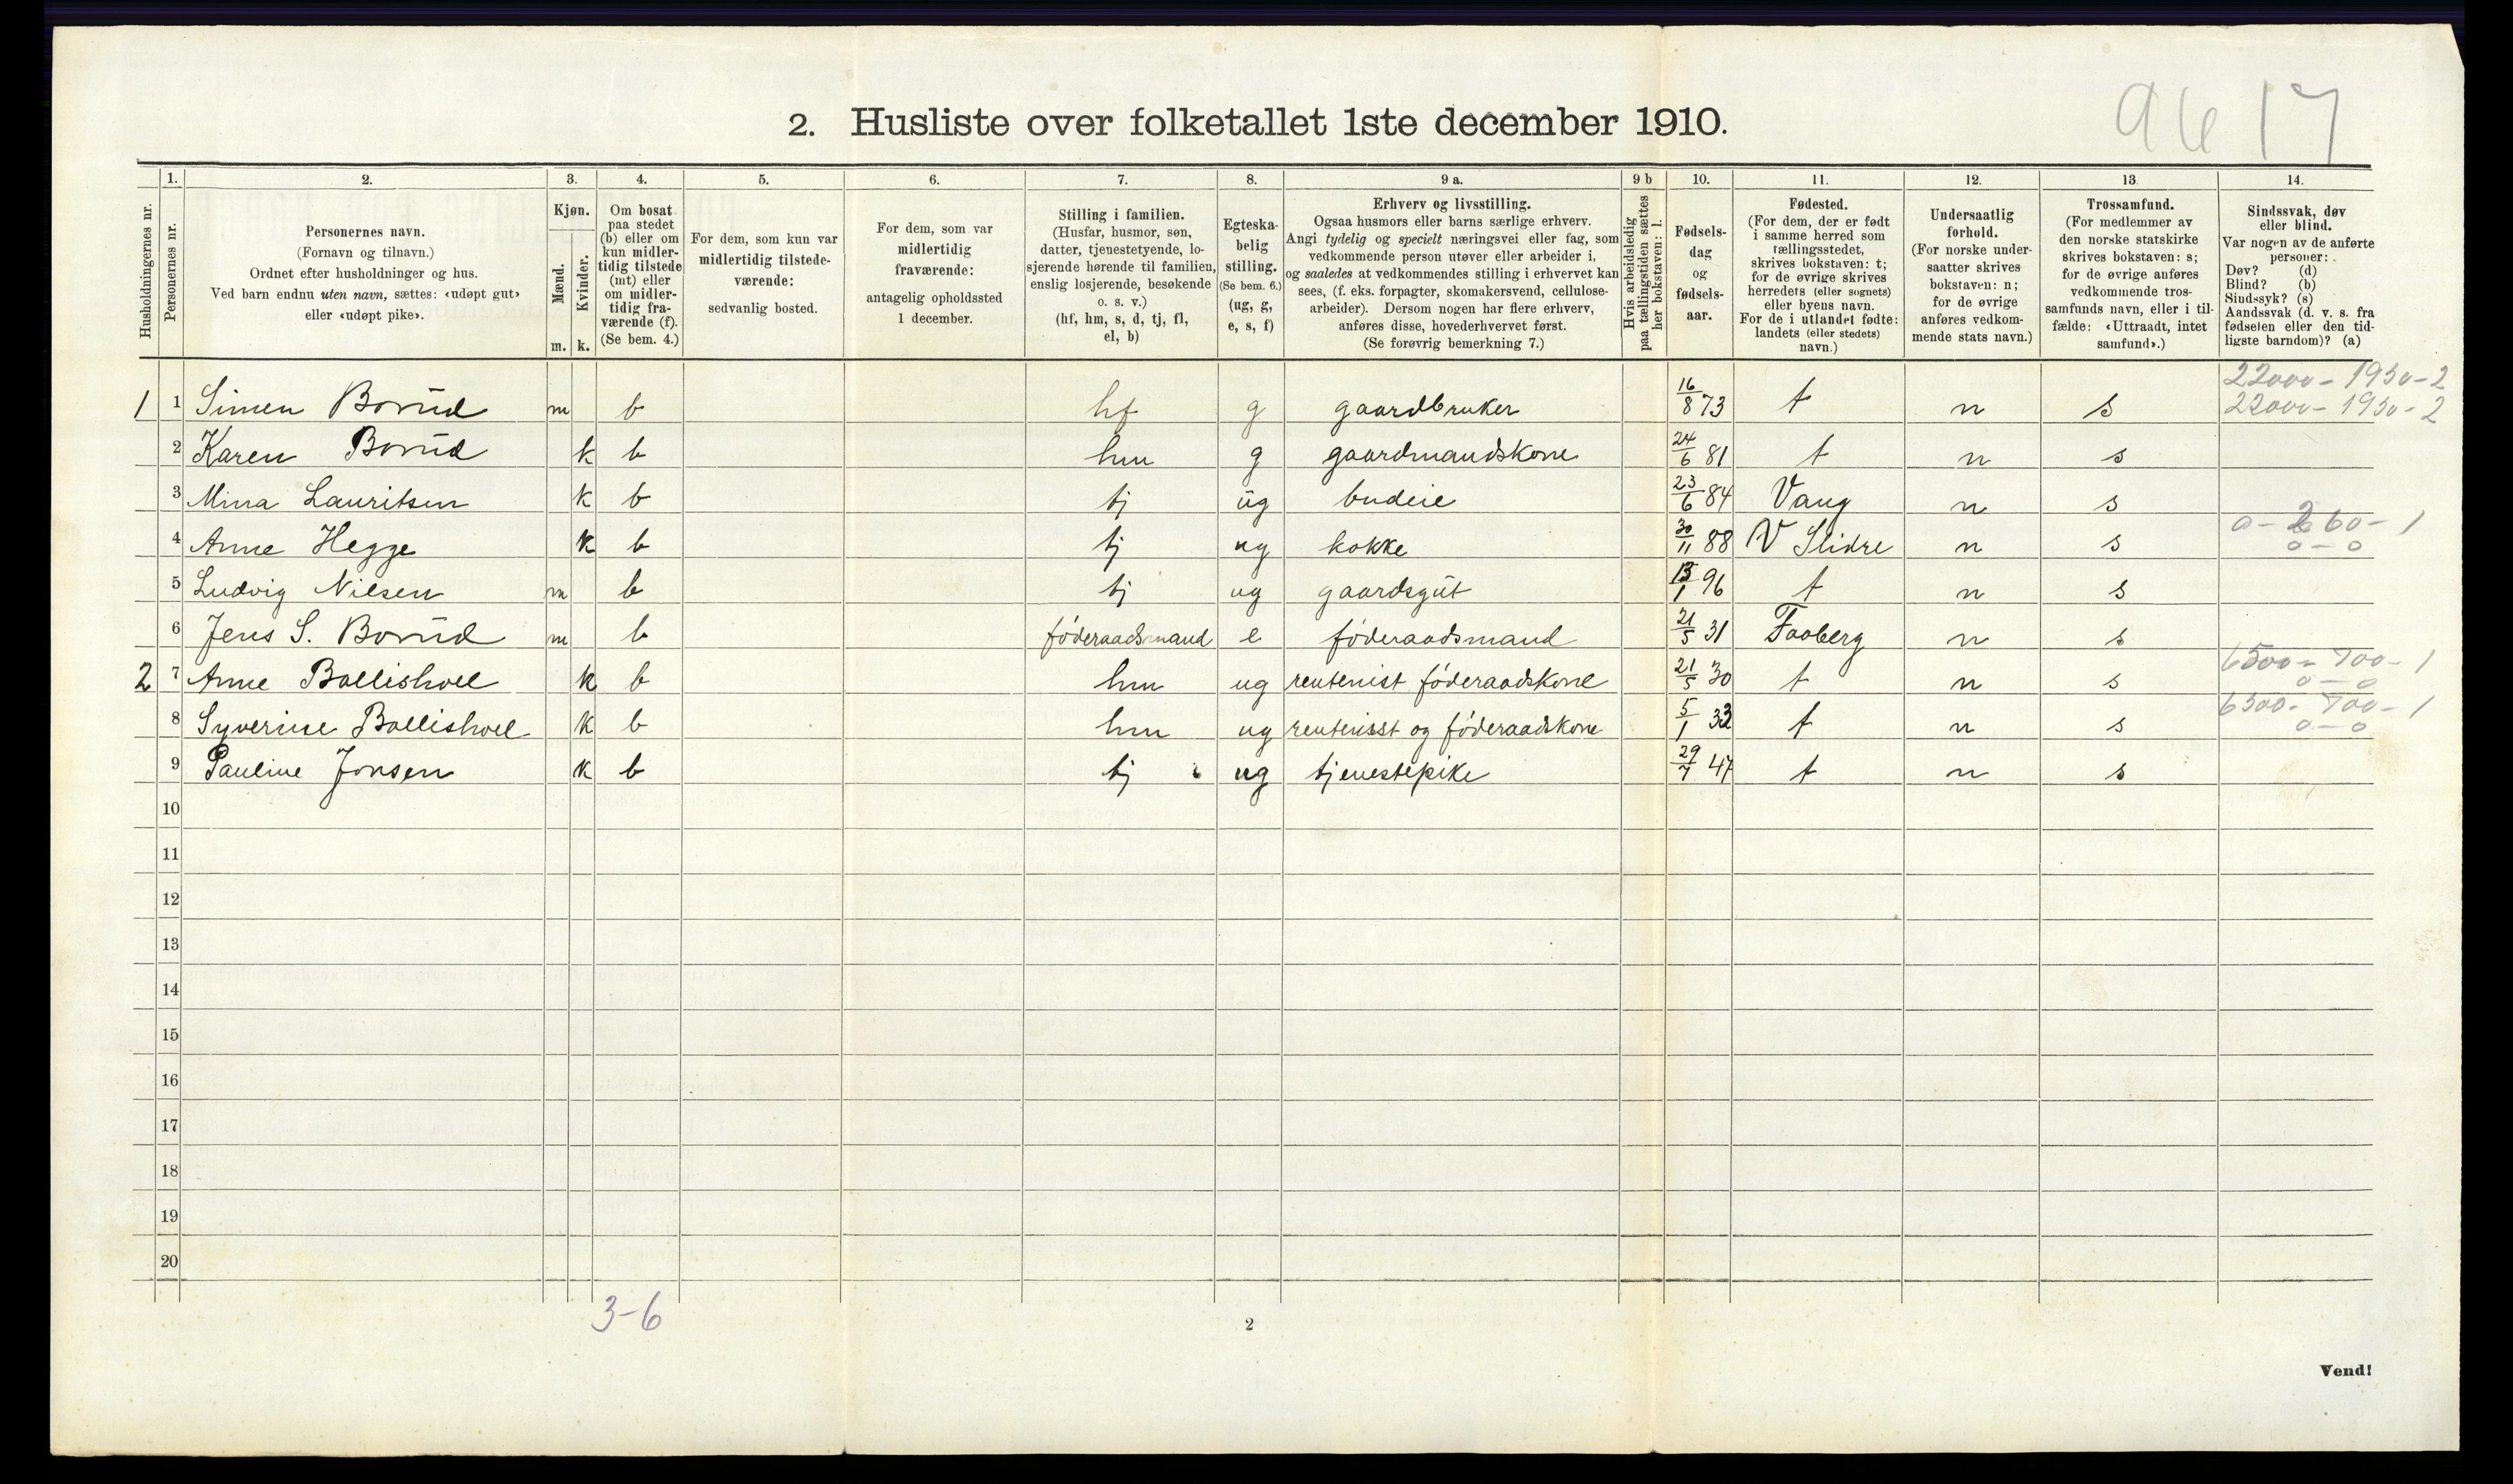 9617
2. Husliste over folketallet 1ste december 1910.
Husholdningernes nr.
1.
Personernes nr.
2.
Personernes navn.
(Fornavn og tilnavn.)
Ordnet efter husholdninger og hus.
Ved barn endnu uten navn, sættes: «udøpt gut»
eller «udøpt pike».
3.
Kjøn.
Mænd.
Kvinder.
m. k.
4.
Om bosat
paa stedet
(b) eller om
kun midler-
tidig tilstede
(mt) eller
om midler-
tidig fra-
værende (f).
(Se bem. 4.)
5.
For dem, som kun var
midlertidig tilstede-
værende:
sedvanlig bosted.
6.
For dem, som var
midlertidig
fraværende:
antagelig opholdssted
1 december.
7.
Stilling i familien.
(Husfar, husmor, søn,
datter, tjenestetyende, lo-
sjerende hørende til familien,
enslig losjerende, besøkende
o. s. v.)
(hf, hm, s, d, tj, fl,
el, b)
8.
Egteska-
belig
stilling.
(Se bem. 6.)
(ug, g,
e, s, f)
9 a.
Erhverv og livsstilling.
Ogsaa husmors eller barns særlige erhverv.
Angi tydelig og specielt næringsvei eller fag, som
vedkommende person utøver eller arbeider i,
og saaledes at vedkommendes stilling i erhvervet kan
sees, (f. eks. forpagter, skomakersvend, cellulose-
arbeider). Dersom nogen har flere erhverv,
anføres disse, hovederhvervet først.
(Se forøvrig bemerkning 7.)
9 b
Hvis arbeidsledig
paa tællingstiden sættes
her bokstaven: l.
10.
Fødsels-
dag
og
fødsels-
aar.
11.
Fødested.
(For dem, der er født
i samme herred som
tællingsstedet,
skrives bokstaven: t;
for de øvrige skrives
herredets (eller sognets)
eller byens navn.
For de i utlandet fødte:
landets (eller stedets)
navn.)
12.
Undersaatlig
forhold.
(For norske under-
saatter skrives
bokstaven: n;
for de øvrige
anføres vedkom-
mende stats navn.)
13.
Trossamfund.
(For medlemmer av
den norske statskirke
skrives bokstaven: s;
for de øvrige anføres
vedkommende tros-
samfunds navn, eller i til-
fælde: «Uttraadt, intet
samfund».)
14.
Sindssvak, døv
eller blind.
Var nogen av de anførte
personer:
Døv? (d)
Blind? (b)
Sindssyk? (s)
Aandssvak (d. v. s. fra
fødselen eller den tid-
ligste barndom)? (a)
22000 - 1930 - 2
1 1 Simen Borud m b hf g gaardbruker 16/8 73 t n s 22000 - 1930 - 2
2 Karen Borud k b hm g gaardmandskone 24/6 81 t n s
3 Mina Lauritsen k b tj ug budeie 23/6 84 Vang n s
0 - 260 - 1
4 Anne Hegge k b tj ug kokke 30/11 88 V Slidre n s 0 - 0
5 Ludvig Nilsen m b tj ug gaardsgut 13/1 96 t n s
6 Jens S. Borud m b føderaadsmand e føderaadsmand 21/5 31 Faaberg n s
6500 - 700 - 1
2 7 Anne Bollishoel k b hm ug rentenist føderaadskone 21/5 30 t n s 0 - 0
6300 - 700 - 1
8 Syverine Bollishoel k b hm ug rentenisst og føderaadskone 5/1 33 t n s 0 - 0
9 Pauline Jonsen k b tj ug tjenestepike 29/7 47 t n s
10
11
12
13
14
15
16
17
18
19
20
3-6
2
Vend!